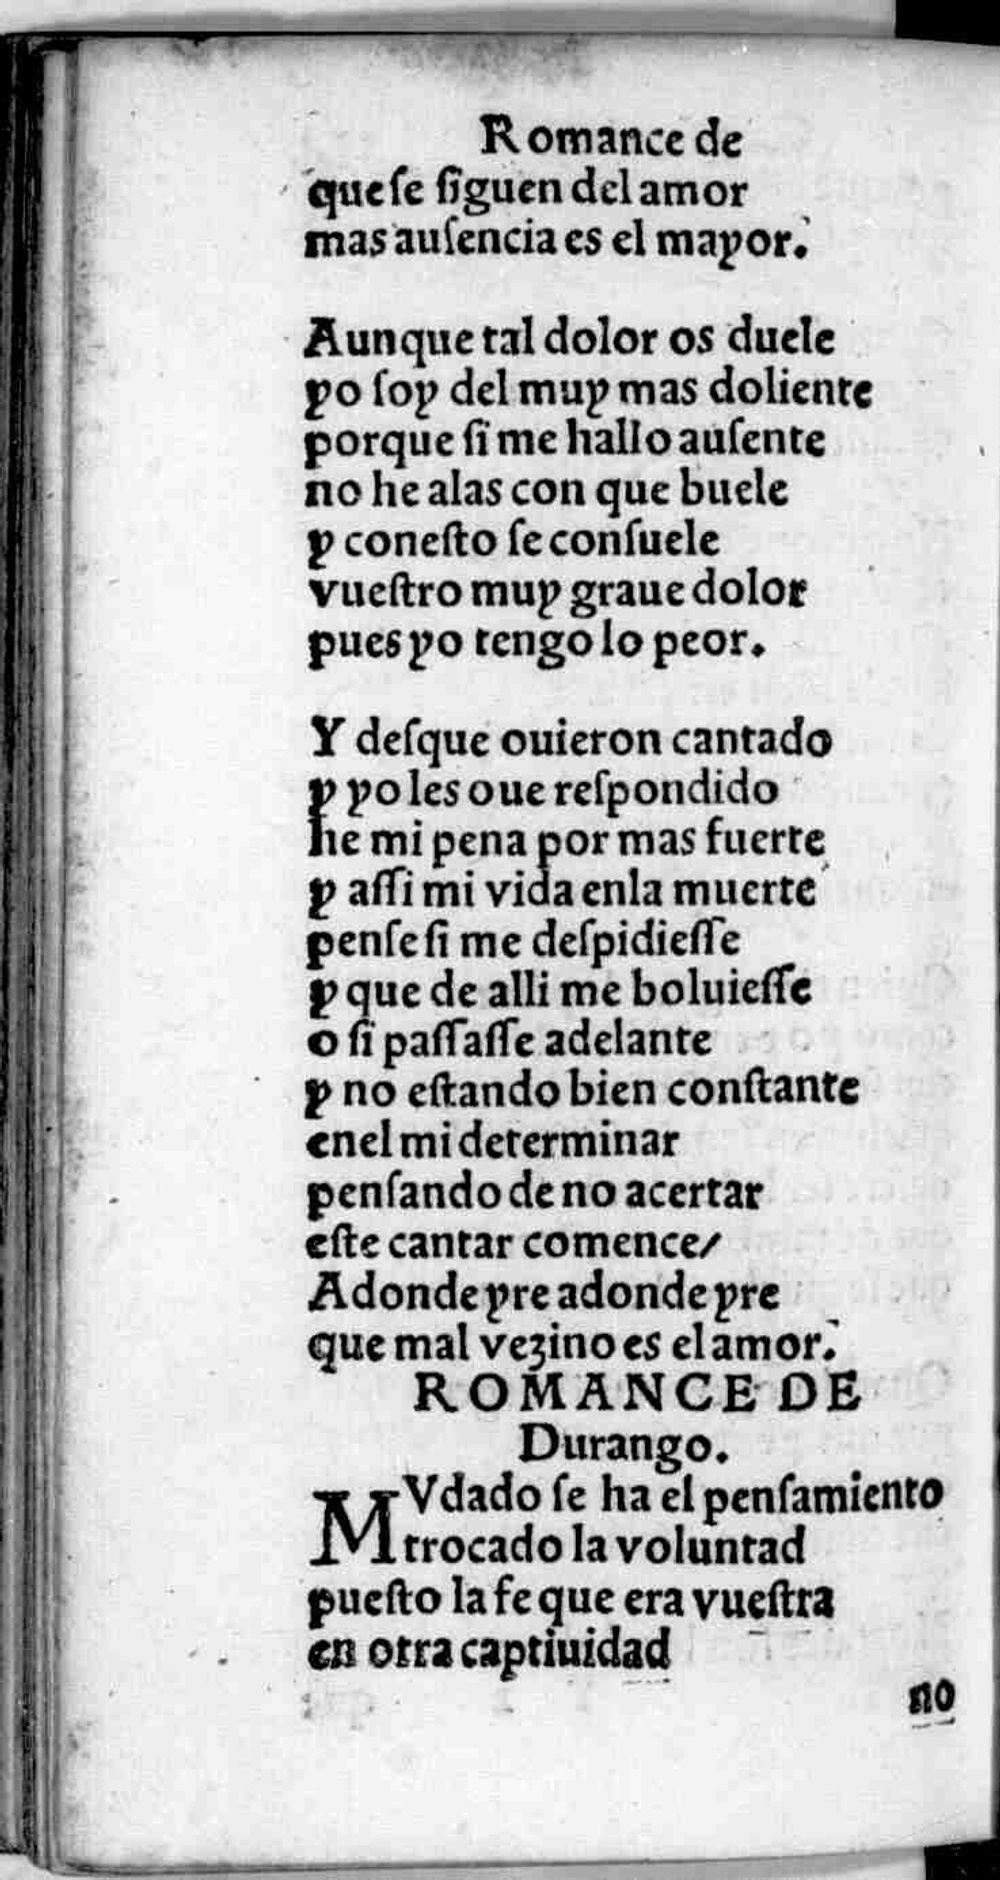 Romance de
que ſe ſiguen del amor
mas auſencia es el mayor.
Aunque tal dolor os duele
yo ſoy del muy mas doliente
porque ſi me hallo auſente
no he alas con que buele
y coneſto ſe conſuele
vueſtro muy graue dolor
pues yo tengo lo peor.
Y deſque ouieron cantado
y yo les oue reſpondido
he mi pena por mas fuerte
y aſſi mi vida enla muerte
penſe ſi me deſpidieſſe
y que de alli me boluieſſe
o ſi paſſaſſe adelante
y no eſtando bien conſtante
enel mi determinar
penſando de no acertar
eſte cantar comence/
Adonde yre adonde yre
que mal vezino es el amor.
ROMANCE DE
Durango.
MVdado ſe ha el penſamiento
trocado la voluntad
pueſto la fe que era vueſtra
en otra captiuidad
no